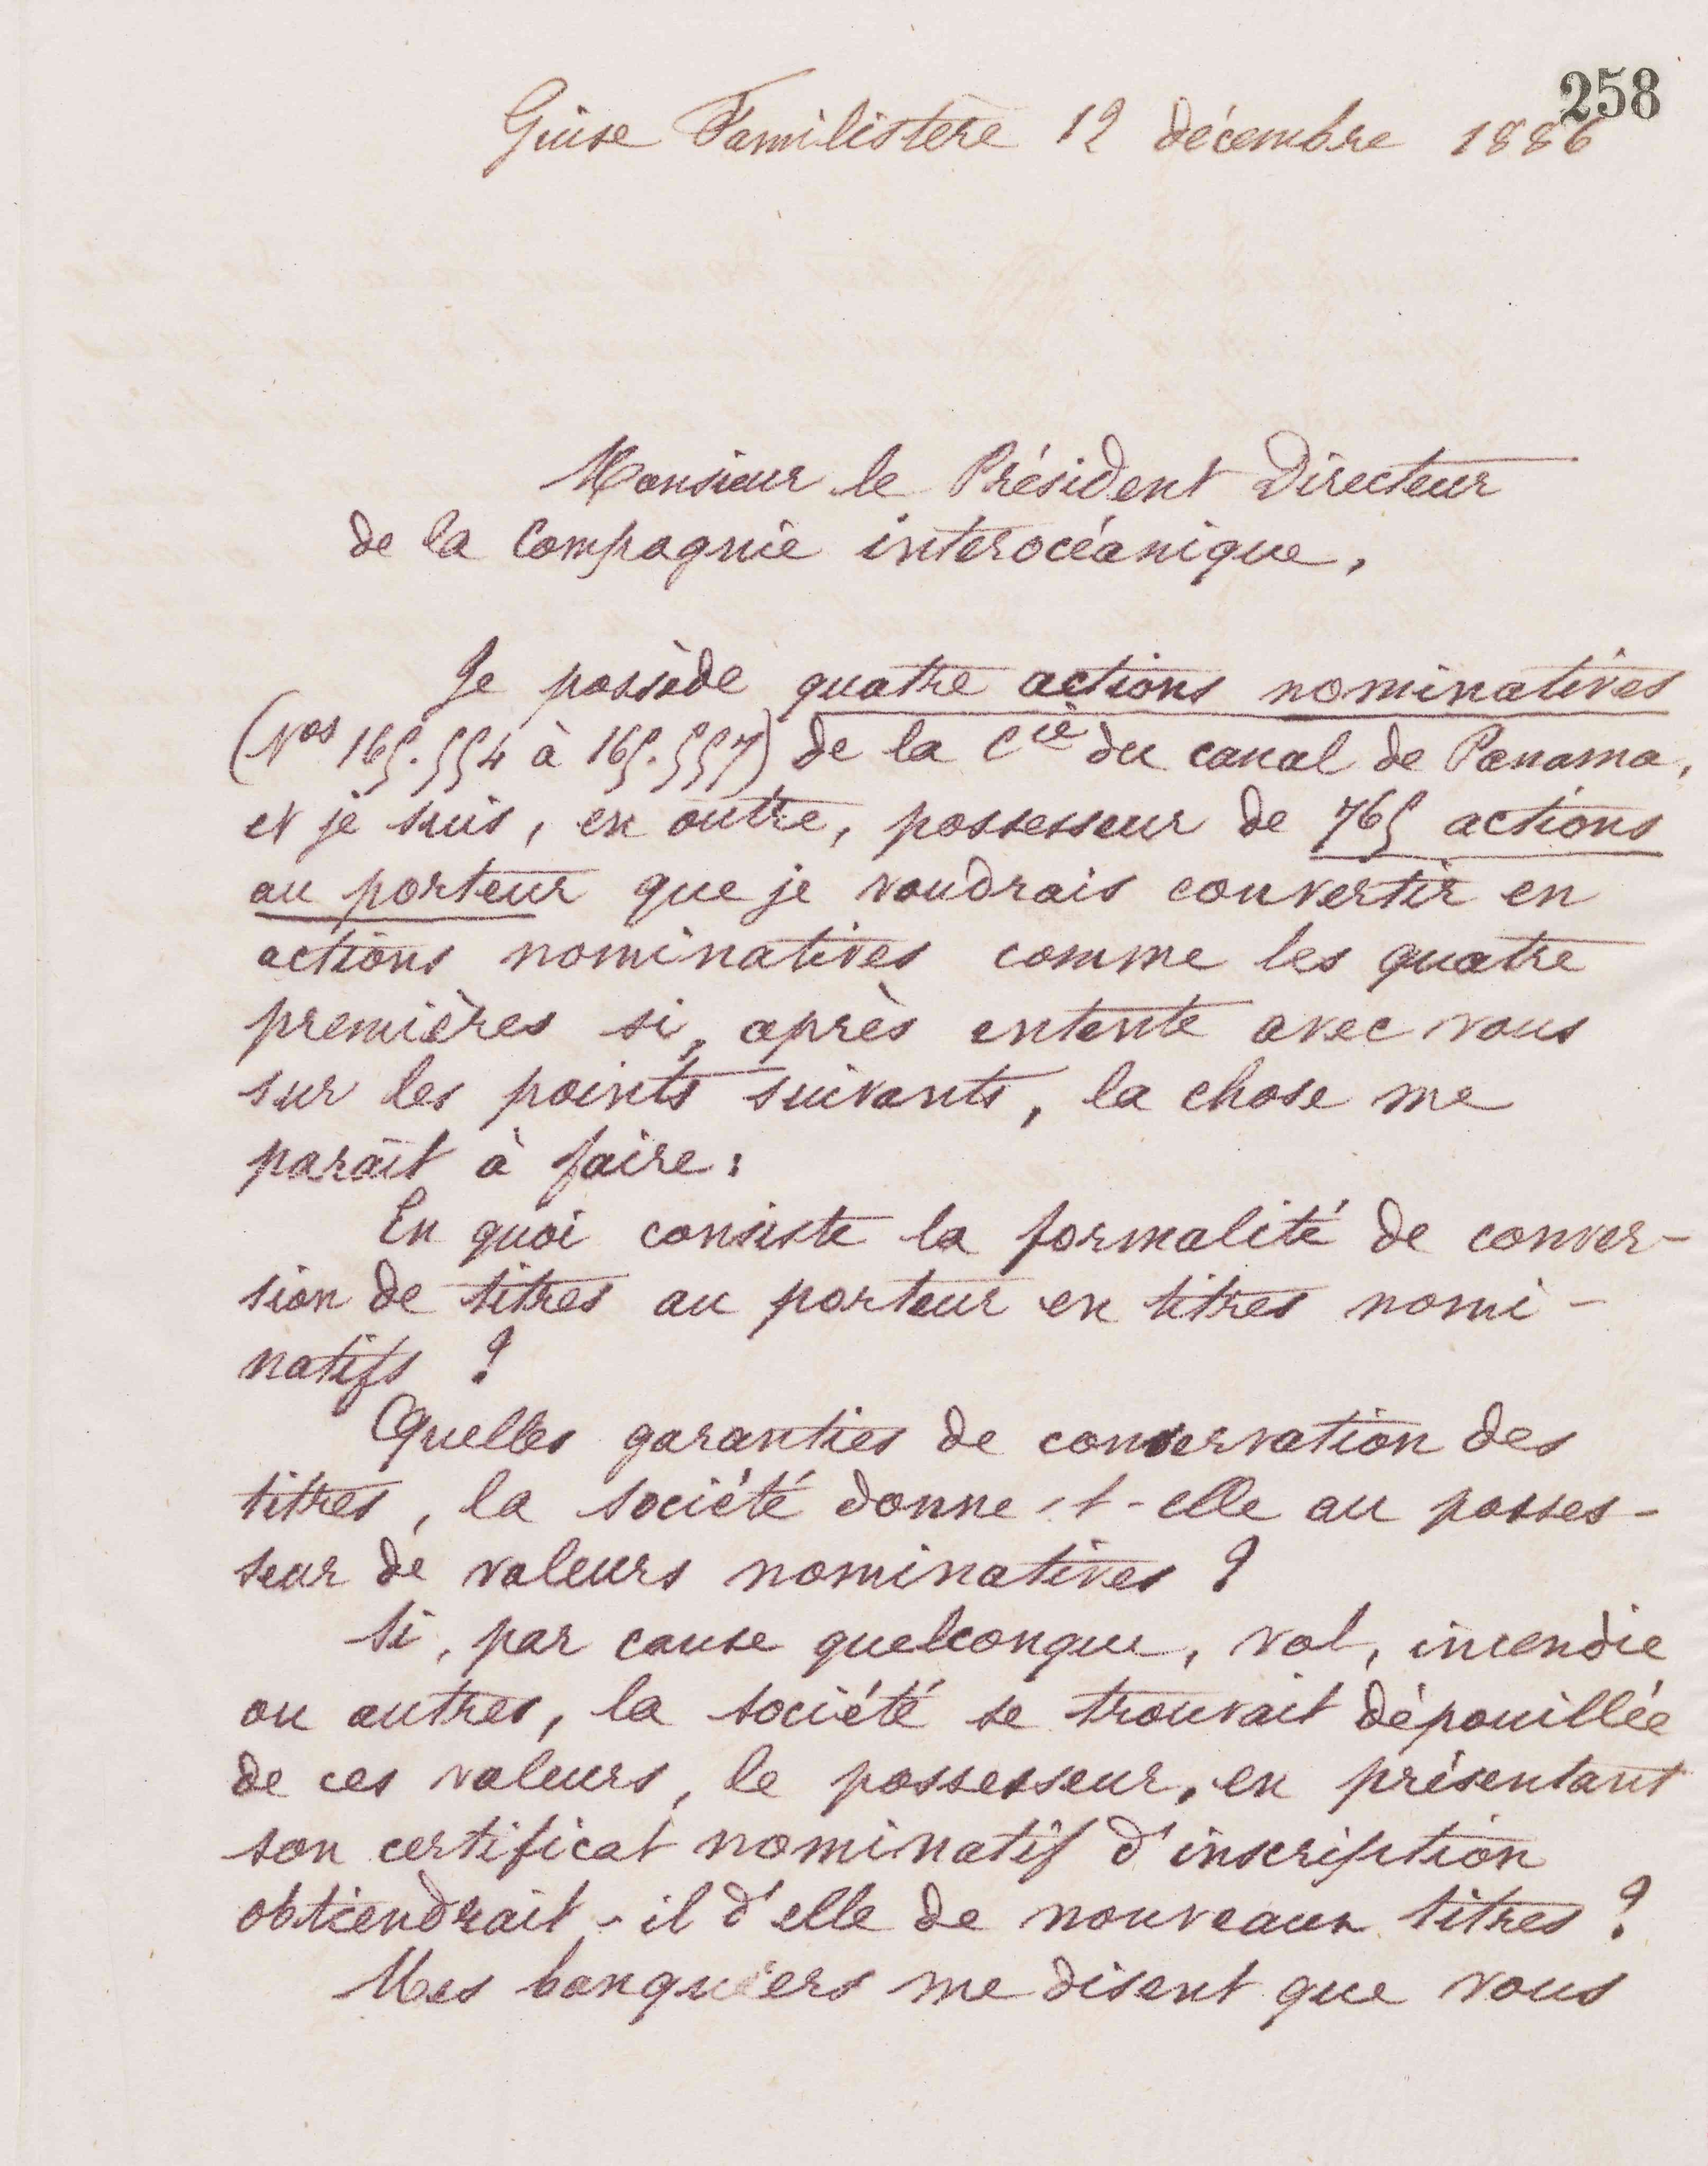 258
Guise Familistère 12 décembre 1886
Monsieur le Président Directeur
de la Compagnie interocéanique,
Je possède quatre actions nominatives
(Nos 165.554 à 165.557) de la Cie du canal de Panama,
et je suis, en outre, possesseur de 765 actions
au porteur que je voudrais convertir en
actions nominatives comme les quatre
premières si, après entente avec vous
sur les points suivants, la chose me
paraît à faire:
En quoi consiste la formalité de conver-
sion de titres au porteur en titres nomi-
natifs ?
Quelles garanties de conservation des
titres, la société donne-t-elle au posses-
seur de valeurs nominatives ?
Si, par cause quelconque, vol, incendie
ou autres, la société se trouvait dépouillée
de ces valeurs, le possesseur, en présentant
son certificat nominatif d'inscription
obtiendrait-il d'elle de nouveaux titres ?
Mes banquiers me disent que vous